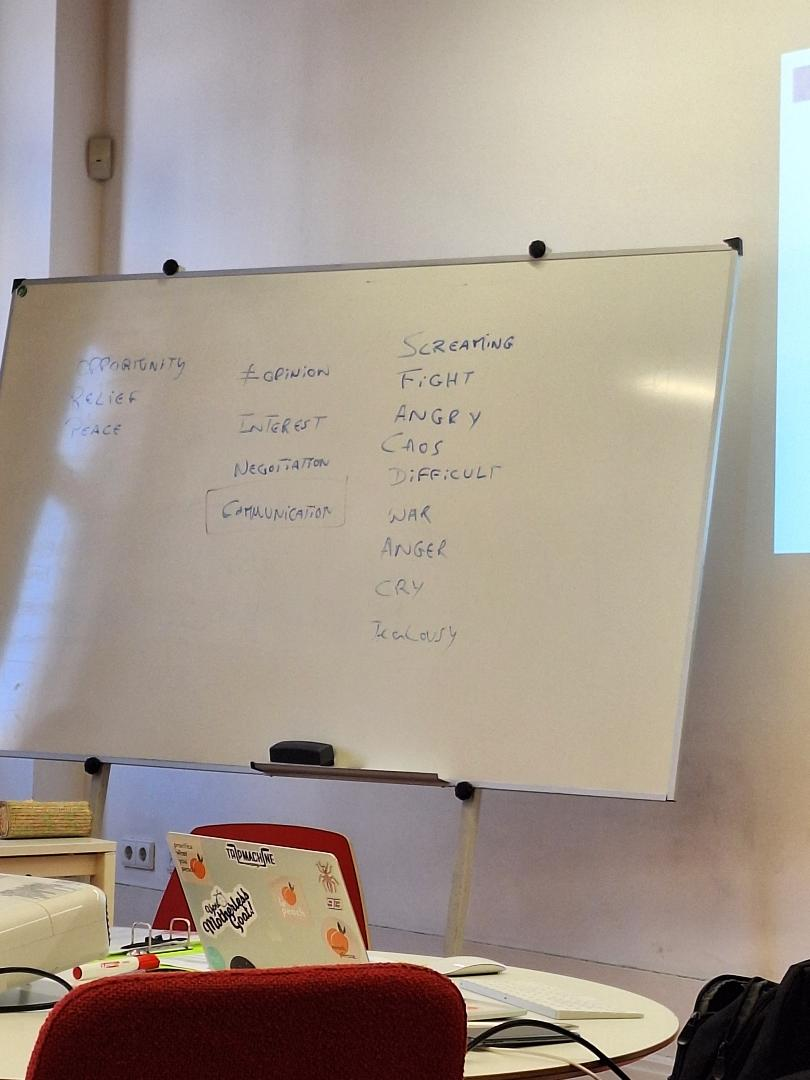 OPPORTUNITY
RELIEF
PEACE
≠ OPINION
INTEREST
NEGOTIATION
COMMUNICATION
SCREAMING
FIGHT
ANGRY
CAOS
DIFFICULT
WAR
ANGER
CRY
JEALOUSY
TRIPMACHINE
You
Motherless
Goat!
peach